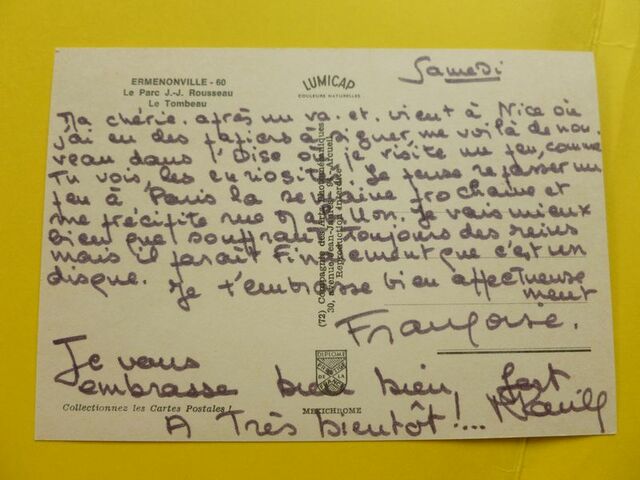 ERMENONVILLE - 60
Le Parc J.-J. Rousseau
Le Tombeau
LUMICAP
COULEURS NATURELLES
Samedi
Ma chérie. après un va. et. vient à Nice où
j'ai eu des papiers à signer, me voilà de nou.
veau dans l'Oise où je visite un peu, comme
tu vois, les curiosités. Je pense repasser un
peu à Paris la semaine prochaine et
me précipite rue. Je vais mieux
bien que souffrant toujours des reins
mais il parait finalement que c'est un
disque. Je t'embrasse bien affectueuse
ment
Françoise.
Je vous
embrasse bien bien, fort
A Très bientôt !...
(72) Compagnie des Arts Photomécaniques
30, avenue Jean-Jaurès - 94-Arcueil
Reproduction interdite
DIPLOME
DE LA
Collectionnez les Cartes Postales !
MEXICHROME